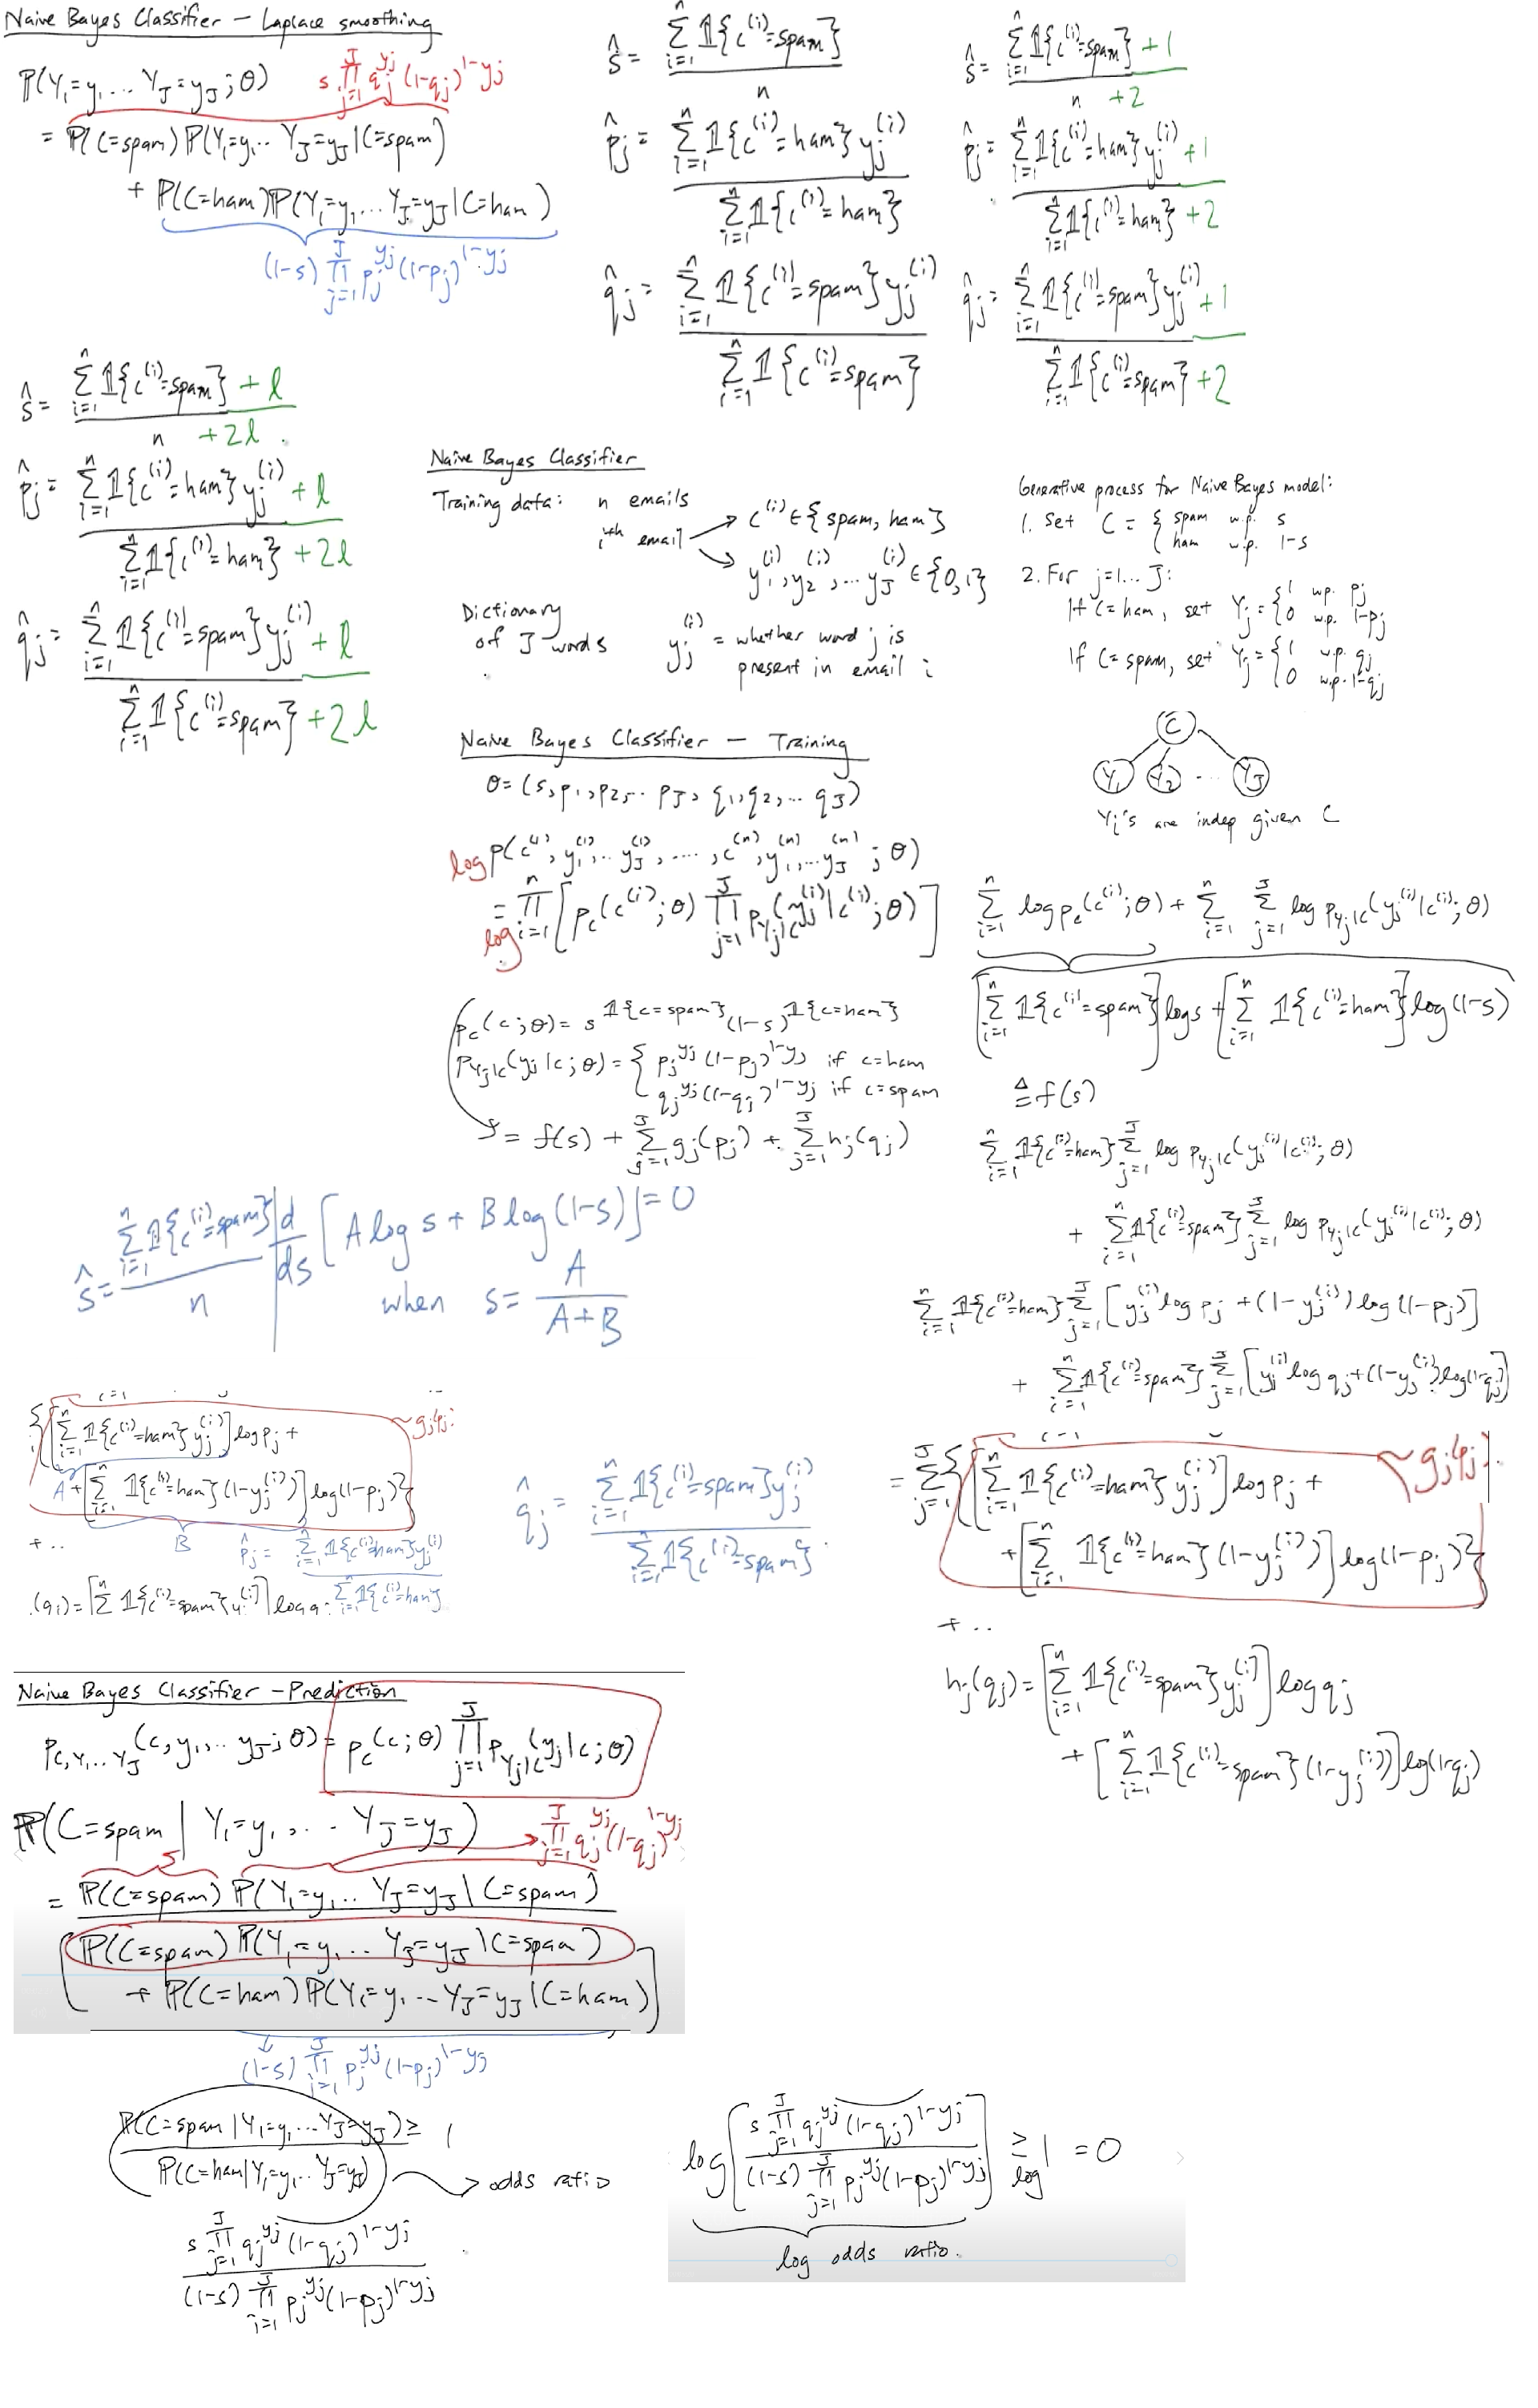 Naive Bayes Classifier – Laplace smoothing
P(Y₁=y₁... Y_J=y_J; θ)
s ∏_{j=1}^{J} q_j^{y_j} (1-q_j)^{1-y_j}
= P(C=spam) P(Y₁=y₁... Y_J=y_J | C=spam)
+ P(C=ham) P(Y₁=y₁... Y_J=y_J | C=ham)
(1-s) ∏_{j=1}^{J} p_j^{y_j} (1-p_j)^{1-y_j}
ŝ = ∑_{i=1}^{n} 𝟙{c^{(i)}=spam} / n
p̂_j = ∑_{i=1}^{n} 𝟙{c^{(i)}=ham} y_j^{(i)} / ∑_{i=1}^{n} 𝟙{c^{(i)}=ham}
q̂_j = ∑_{i=1}^{n} 𝟙{c^{(i)}=spam} y_j^{(i)} / ∑_{i=1}^{n} 𝟙{c^{(i)}=spam}
ŝ = ∑_{i=1}^{n} 𝟙{c^{(i)}=spam} + 1 / n + 2
p̂_j = ∑_{i=1}^{n} 𝟙{c^{(i)}=ham} y_j^{(i)} + 1 / ∑_{i=1}^{n} 𝟙{c^{(i)}=ham} + 2
q̂_j = ∑_{i=1}^{n} 𝟙{c^{(i)}=spam} y_j^{(i)} + 1 / ∑_{i=1}^{n} 𝟙{c^{(i)}=spam} + 2
ŝ = ∑_{i=1}^{n} 𝟙{c^{(i)}=spam} + l / n + 2l
p̂_j = ∑_{i=1}^{n} 𝟙{c^{(i)}=ham} y_j^{(i)} + l / ∑_{i=1}^{n} 𝟙{c^{(i)}=ham} + 2l
q̂_j = ∑_{i=1}^{n} 𝟙{c^{(i)}=spam} y_j^{(i)} + l / ∑_{i=1}^{n} 𝟙{c^{(i)}=spam} + 2l
Naive Bayes Classifier
Training data: n emails
iᵗʰ email
c^{(i)} ∈ {spam, ham}
y₁^{(i)}, y₂^{(i)}, ... y_J^{(i)} ∈ {0,1}
Dictionary
of J words
y_j^{(i)} = whether word j is
present in email i
Generative process for Naive Bayes model:
1. Set C = { spam w.p. s
ham w.p. 1-s
2. For j=1... J:
If C=ham, set Y_j = { 1 w.p. p_j
0 w.p. 1-p_j
If C=spam, set Y_j = { 1 w.p. q_j
0 w.p. 1-q_j
C
Y₁ Y₂ ... Y_J
Y_i's are indep given C
Naive Bayes Classifier – Training
θ = (s, p₁, p₂, ... p_J, q₁, q₂, ... q_J)
log p(c^{(1)}, y₁^{(1)}, ... y_J^{(1)}, ...., c^{(n)}, y₁^{(n)}, ... y_J^{(n)}; θ)
= log ∏_{i=1}^{n} [ p_C(c^{(i)}; θ) ∏_{j=1}^{J} p_{Y_j|C}(y_j^{(i)} | c^{(i)}; θ) ]
∑_{i=1}^{n} log p_C(c^{(i)}; θ) + ∑_{i=1}^{n} ∑_{j=1}^{J} log p_{Y_j|C}(y_j^{(i)} | c^{(i)}; θ)
[∑_{i=1}^{n} 𝟙{c^{(i)}=spam}] log s + [∑_{i=1}^{n} 𝟙{c^{(i)}=ham}] log(1-s)
≜ f(s)
p_C(c; θ) = s^{𝟙{c=spam}} (1-s)^{𝟙{c=ham}}
p_{Y_j|C}(y_j | c; θ) = { p_j^{y_j} (1-p_j)^{1-y_j} if c=ham
q_j^{y_j} (1-q_j)^{1-y_j} if c=spam
= f(s) + ∑_{j=1}^{J} g_j(p_j) + ∑_{j=1}^{J} h_j(q_j)
∑_{i=1}^{n} 𝟙{c^{(i)}=ham} ∑_{j=1}^{J} log p_{Y_j|C}(y_j^{(i)} | c^{(i)}; θ)
+ ∑_{i=1}^{n} 𝟙{c^{(i)}=spam} ∑_{j=1}^{J} log p_{Y_j|C}(y_j^{(i)} | c^{(i)}; θ)
∑_{i=1}^{n} 𝟙{c^{(i)}=ham} ∑_{j=1}^{J} [ y_j^{(i)} log p_j + (1-y_j^{(i)}) log(1-p_j) ]
+ ∑_{i=1}^{n} 𝟙{c^{(i)}=spam} ∑_{j=1}^{J} [ y_j^{(i)} log q_j + (1-y_j^{(i)}) log(1-q_j) ]
ŝ = ∑_{i=1}^{n} 𝟙{c^{(i)}=spam} / n
d/ds [A log s + B log(1-s)] = 0
when s = A / A+B
{ [∑_{i=1}^{n} 𝟙{c^{(i)}=ham} y_j^{(i)}] log p_j +
g_j(p_j
A + [∑_{i=1}^{n} 𝟙{c^{(i)}=ham} (1-y_j^{(i)})] log(1-p_j) }
+ .. B
p̂_j = ∑_{i=1}^{n} 𝟙{c^{(i)}=ham} y_j^{(i)} / ∑_{i=1}^{n} 𝟙{c^{(i)}=ham}
(q_j) = [∑ 𝟙{c^{(i)}=spam} y_j^{(i)}] log q
q̂_j = ∑_{i=1}^{n} 𝟙{c^{(i)}=spam} y_j^{(i)} / ∑_{i=1}^{n} 𝟙{c^{(i)}=spam}
= ∑_{j=1}^{J} { [∑_{i=1}^{n} 𝟙{c^{(i)}=ham} y_j^{(i)}] log p_j +
g_j(p_j
+ [∑_{i=1}^{n} 𝟙{c^{(i)}=ham} (1-y_j^{(i)})] log(1-p_j) }
+ ..
h_j(q_j) = [∑_{i=1}^{n} 𝟙{c^{(i)}=spam} y_j^{(i)}] log q_j
+ [∑_{i=1}^{n} 𝟙{c^{(i)}=spam} (1-y_j^{(i)})] log(1-q_j)
Naive Bayes Classifier – Prediction
p_{C,Y₁...Y_J}(c, y₁, ... y_J; θ) = p_C(c; θ) ∏_{j=1}^{J} p_{Y_j|C}(y_j | c; θ)
P(C=spam | Y₁=y₁, ... Y_J=y_J)
s
∏_{j=1}^{J} q_j^{y_j} (1-q_j)^{1-y_j}
= P(C=spam) P(Y₁=y₁... Y_J=y_J | C=spam)
P(C=spam) P(Y₁=y₁... Y_J=y_J | C=spam)
+ P(C=ham) P(Y₁=y₁... Y_J=y_J | C=ham)
(1-s) ∏_{j=1}^{J} p_j^{y_j} (1-p_j)^{1-y_j}
P(C=spam | Y₁=y₁, ... Y_J=y_J) / P(C=ham | Y₁=y₁... Y_J=y_J) ≥ 1
odds ratio
s ∏_{j=1}^{J} q_j^{y_j} (1-q_j)^{1-y_j} / (1-s) ∏_{j=1}^{J} p_j^{y_j} (1-p_j)^{1-y_j}
log [ s ∏_{j=1}^{J} q_j^{y_j} (1-q_j)^{1-y_j} / (1-s) ∏_{j=1}^{J} p_j^{y_j} (1-p_j)^{1-y_j} ] ≥ log 1 = 0
log odds ratio.